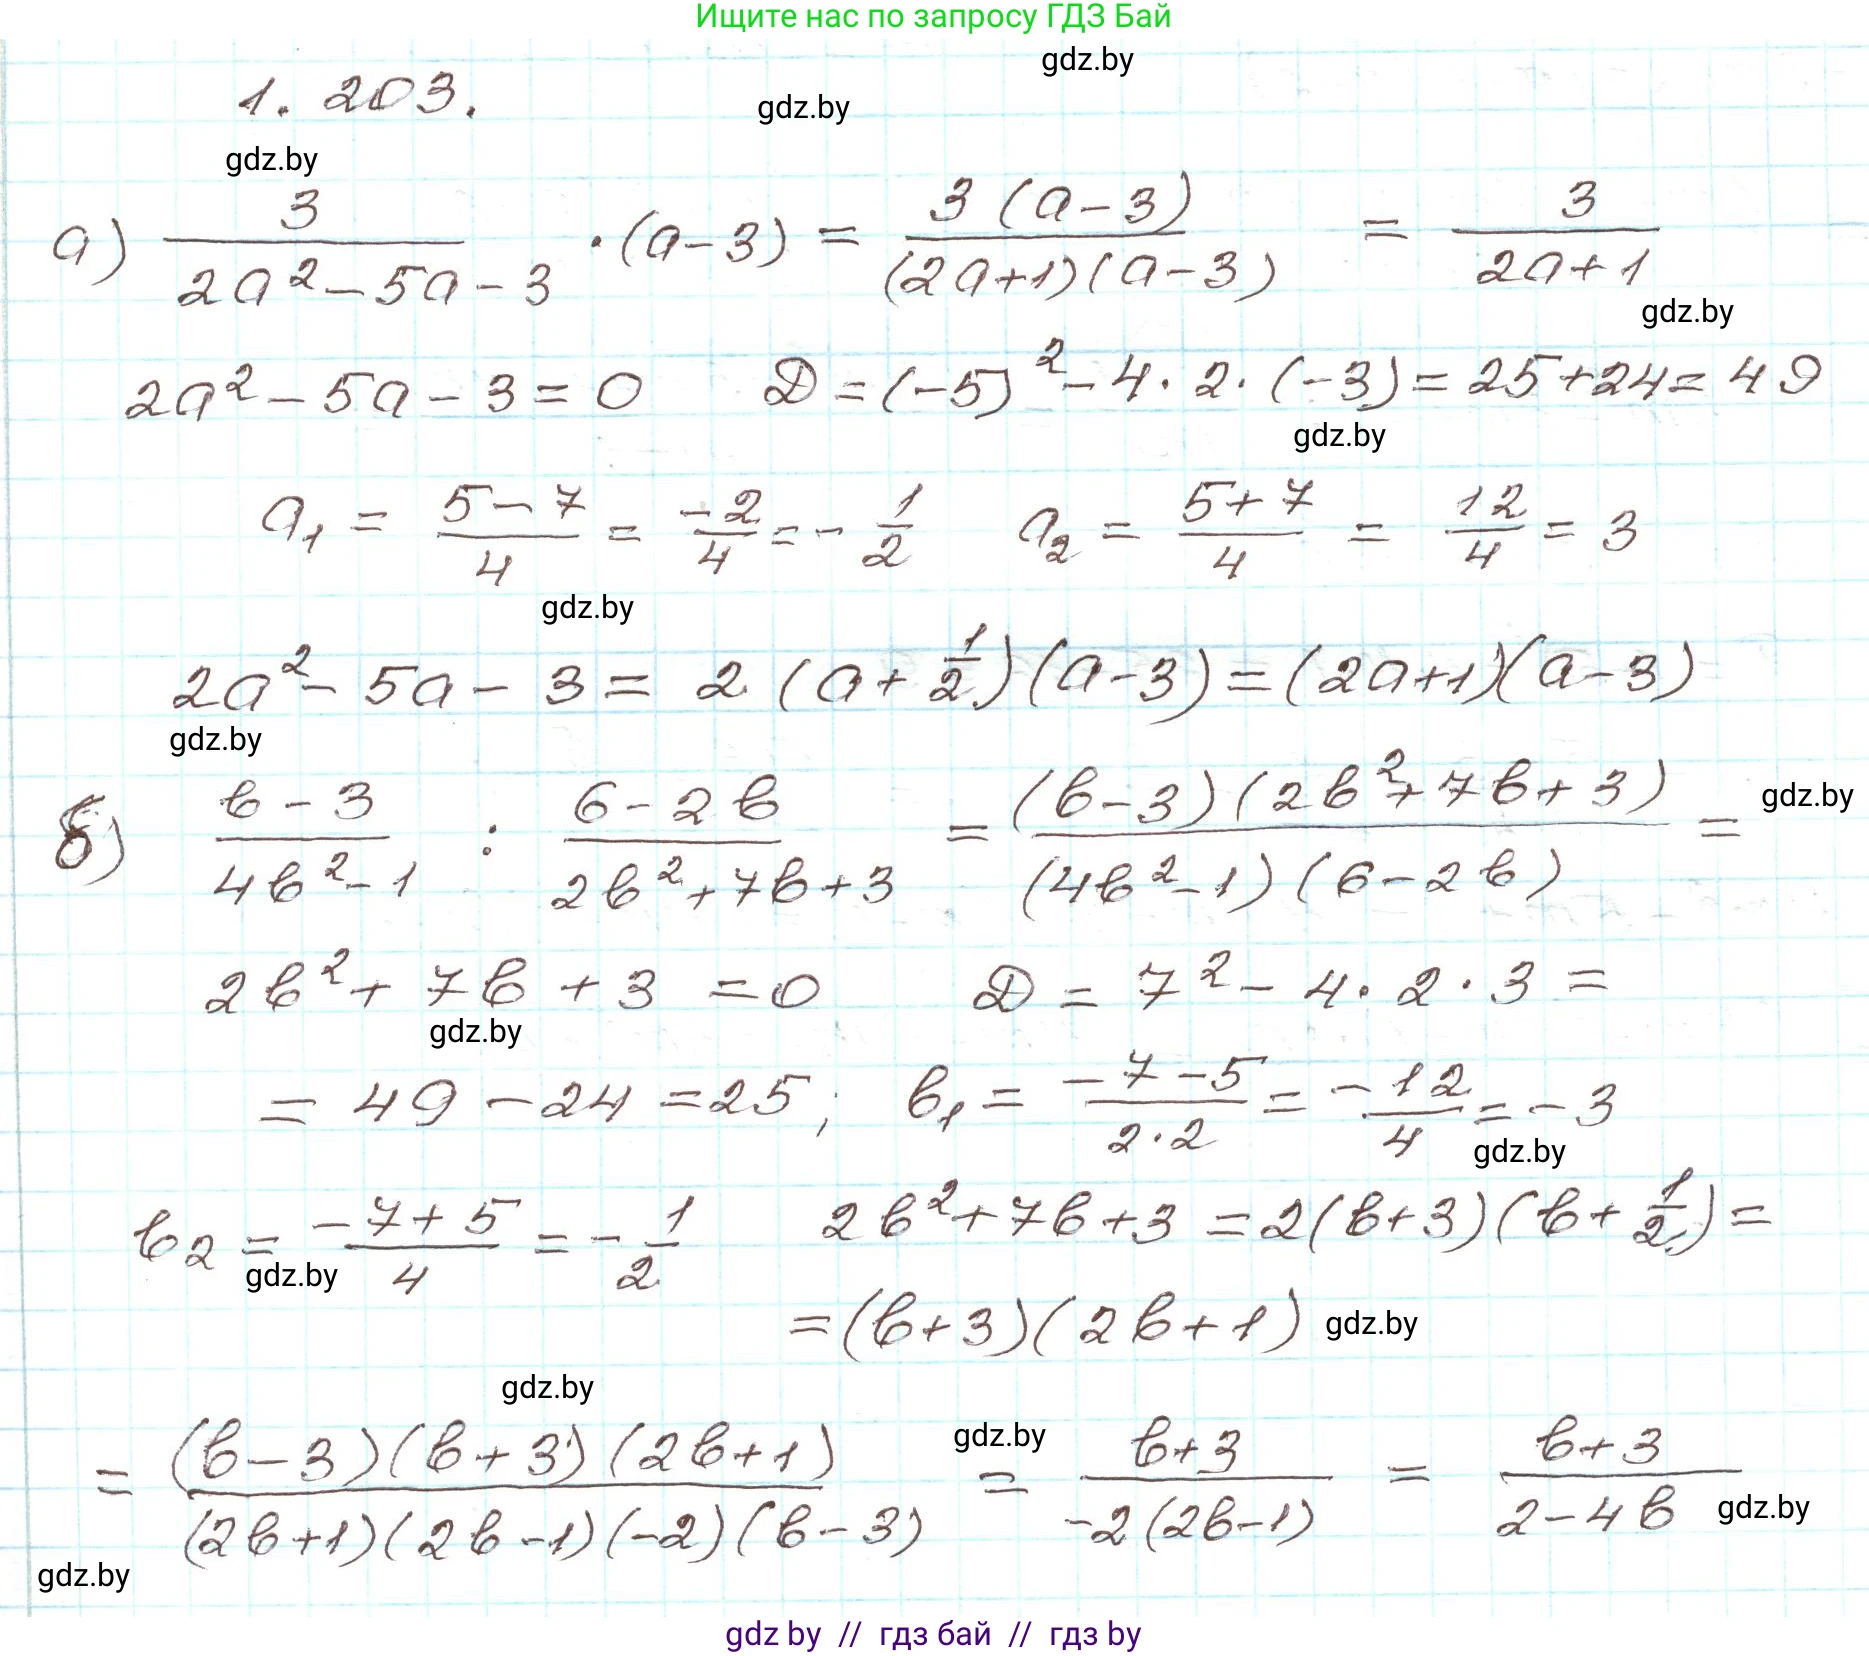 Ищите нас по запросу ГДЗ Бай
gdz.by
1. 203.
gdz.by
gdz.by
а) 3/(2a² - 5a - 3) · (a - 3) = 3(a - 3)/((2a+1)(a - 3)) = 3/(2a+1)
gdz.by
2a² - 5a - 3 = 0 D = (-5)² - 4 · 2 · (-3) = 25 + 24 = 49
gdz.by
a₁ = (5 - 7)/4 = -2/4 = - 1/2 a₂ = (5 + 7)/4 = 12/4 = 3
gdz.by
2a² - 5a - 3 = 2 (a + 1/2)(a - 3) = (2a+1)(a - 3)
gdz.by
б) (b - 3)/(4b² - 1) : (6 - 2b)/(2b² + 7b + 3) = (b - 3)(2b² + 7b + 3)/((4b² - 1)(6 - 2b)) =
gdz.by
2b² + 7b + 3 = 0 D = 7² - 4 · 2 · 3 =
gdz.by
= 49 - 24 = 25; b₁ = (-7 - 5)/(2 · 2) = -12/4 = - 3
gdz.by
b₂ = (-7 + 5)/4 = - 1/2 2b² + 7b + 3 = 2(b + 3)(b + 1/2) =
gdz.by
= (b + 3)(2b + 1)
gdz.by
gdz.by
gdz.by
= (b - 3)(b + 3)(2b + 1)/((2b + 1)(2b - 1)(-2)(b - 3)) = (b + 3)/(-2(2b - 1)) = (b + 3)/(2 - 4b)
gdz.by
gdz.by
gdz by // гдз бай // гдз by